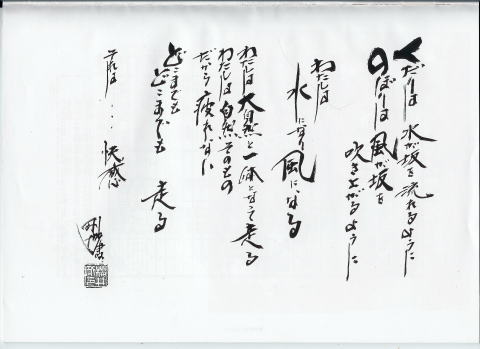 くだりは 水が坂を 流れるように
のぼりは 風が坂を
吹き上がるように
わたしは
水になり 風になる
わたしは 大自然と 一体となって 走る
わたしは 自然そのもの
だから 疲れない
どこまでも
どこまでも 走る
それは・・・快感